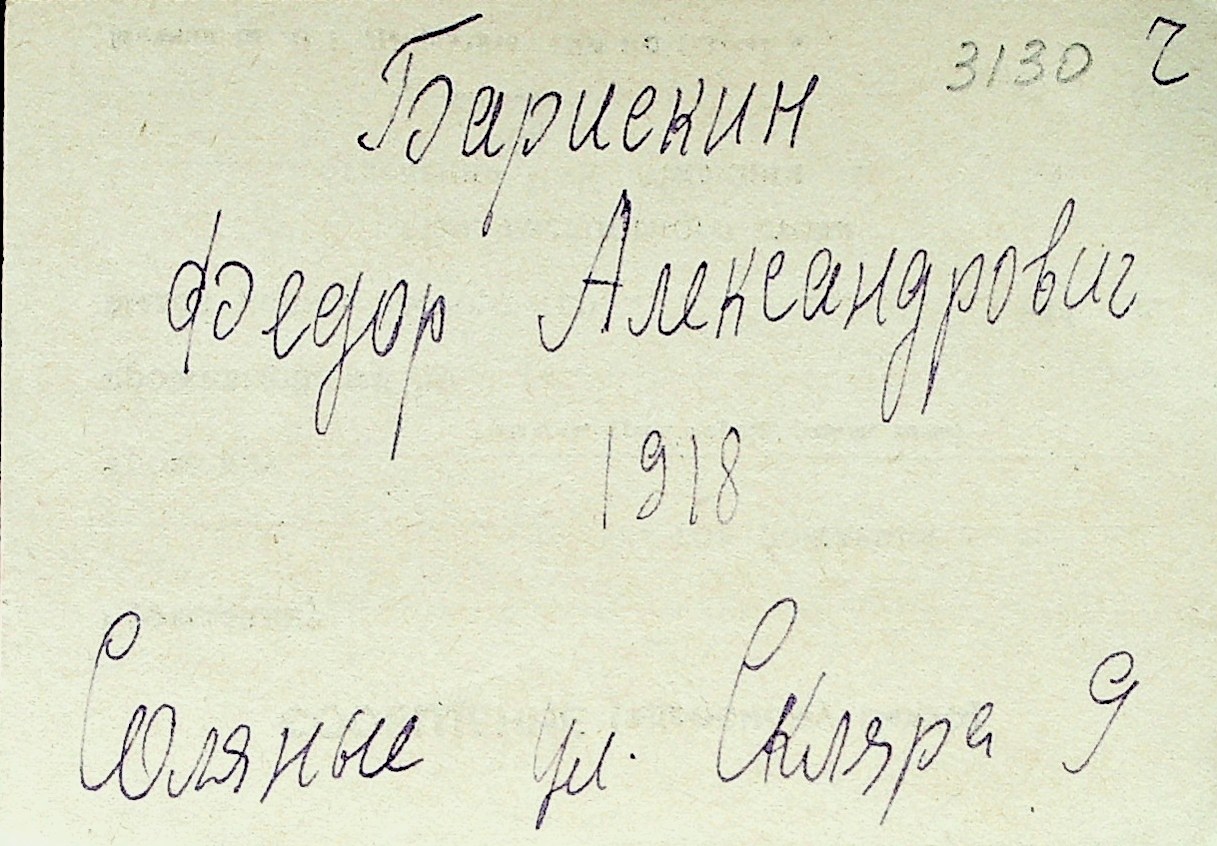 3130 ч
Барискин
Федор Александрович
1918
Соляные ул. Скляра 9